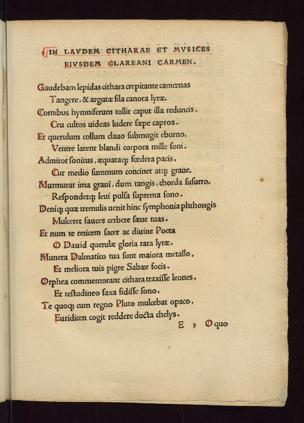 IN LAVDEM CITHARAE ET MVSICES
EIVSDEM GLAREANI CARMEN.
Gaudebam lepidas cithara crepitante camœnas
Tangere, & argutæ fila canora lyræ.
Cornibus hymniferum tollit caput illa reduncis,
Ceu cultos uideas ludere sæpe capros.
Et querulum collum dauo submugit eburno,
Ventre latent blandi corpora mille soni.
Admiror sonitus, æquataq; fœdera pacis,
Cur medio summum concinet atq; graue.
Murmurat ima graui, dum tangis, chorda susurro,
Respondetq; leui pulsa suprema sono.
Deniq; quæ tremulis uernit hinc symphonia phthongis
Mulceret fauces cerbere sæue tuas.
Et num te reticem sacer ac diuine Poeta
O Dauid querulæ gloria rara lyræ.
Munera Dalmatico tua sunt maiora metallo,
Et meliora tuis pigre Sabæe focis.
Orphea commemorant cithara traxisse leones,
Et testudineo saxa fidisse sono.
Te quoq; cum regno Pluto mulcebat opaco,
Euridicen cogit reddere docta chelys.
E 3 O quo